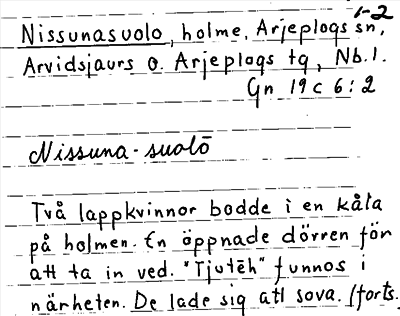 1-2
Nissunasuolo, holme, Arjeplogs sn,
Arvidsjaurs o. Arjeplogs tg, Nb.l.
Gn 19 c 6:2
Nissuna-suolō
Två lappkvinnor bodde i en kåta
på holmen. En öppnade dörren för
att ta in ved. "Tjutēh" funnos i
närheten. De lade sig att sova. (forts.